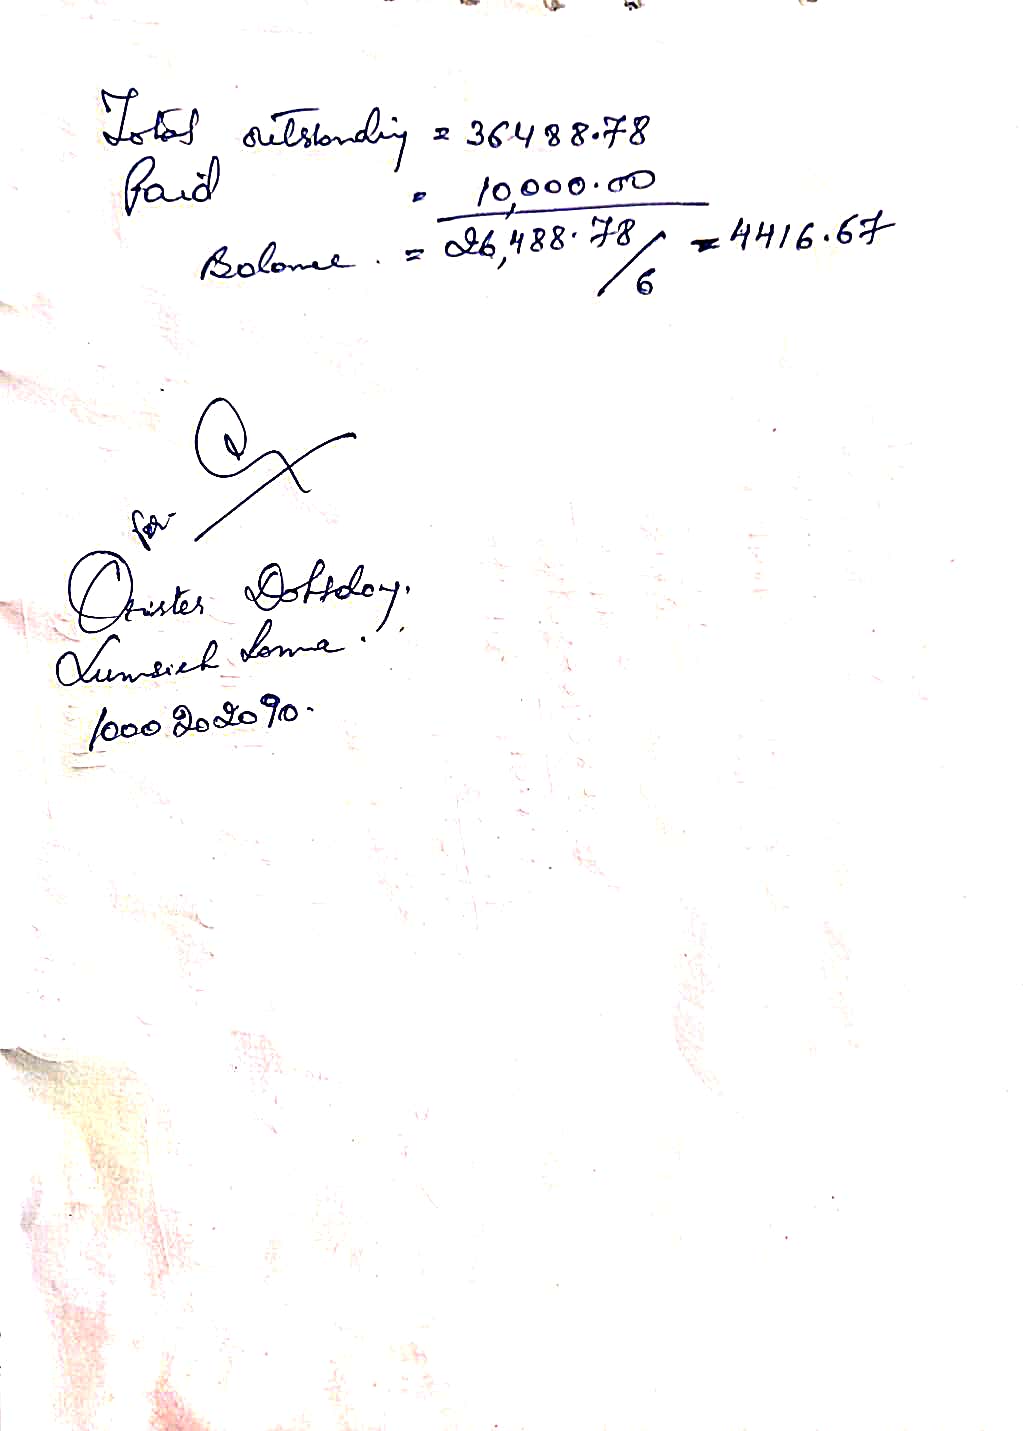 Total outstanding = 36488.78
Paid = 10,000.00
Balance . = 26,488.78/6 = 4416.67
for
Lumsieh Loma.
1000202090.